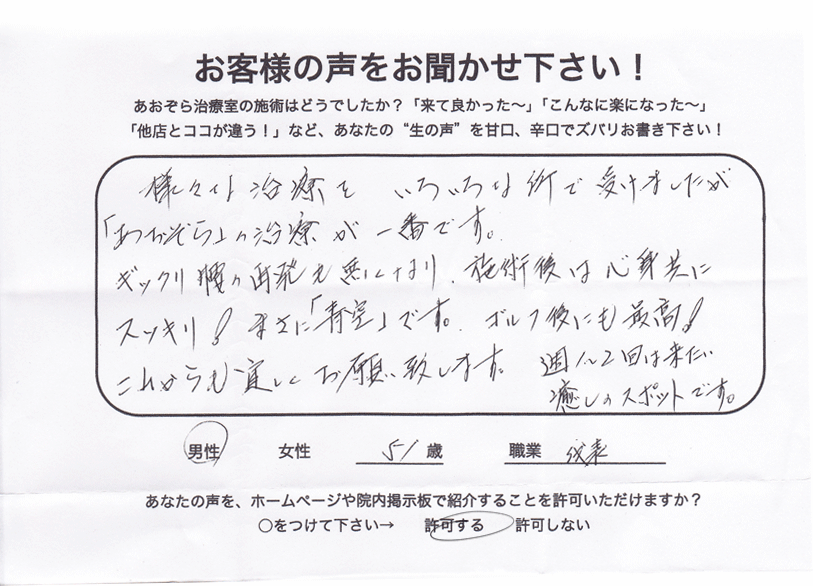 お客様の声をお聞かせ下さい！
あおぞら治療室の施術はどうでしたか？「来て良かった〜」「こんなに楽になった〜」
「他店とココが違う！」など、あなたの“生の声”を甘口、辛口でズバリお書き下さい！
様々な治療を いろいろな所で受けましたが
「あおぞら」の治療が一番です。
ギックリ腰の再発も無くなり、施術後は心身共に
スッキリ！まさに「青空」です。ゴルフ後にも最高！
これからも宜しくお願い致します。週1〜2回は来たい
癒しのスポットです。
男性 女性 51歳 職業 代表
あなたの声を、ホームページや院内掲示板で紹介することを許可いただけますか？
○をつけて下さい→ 許可する 許可しない